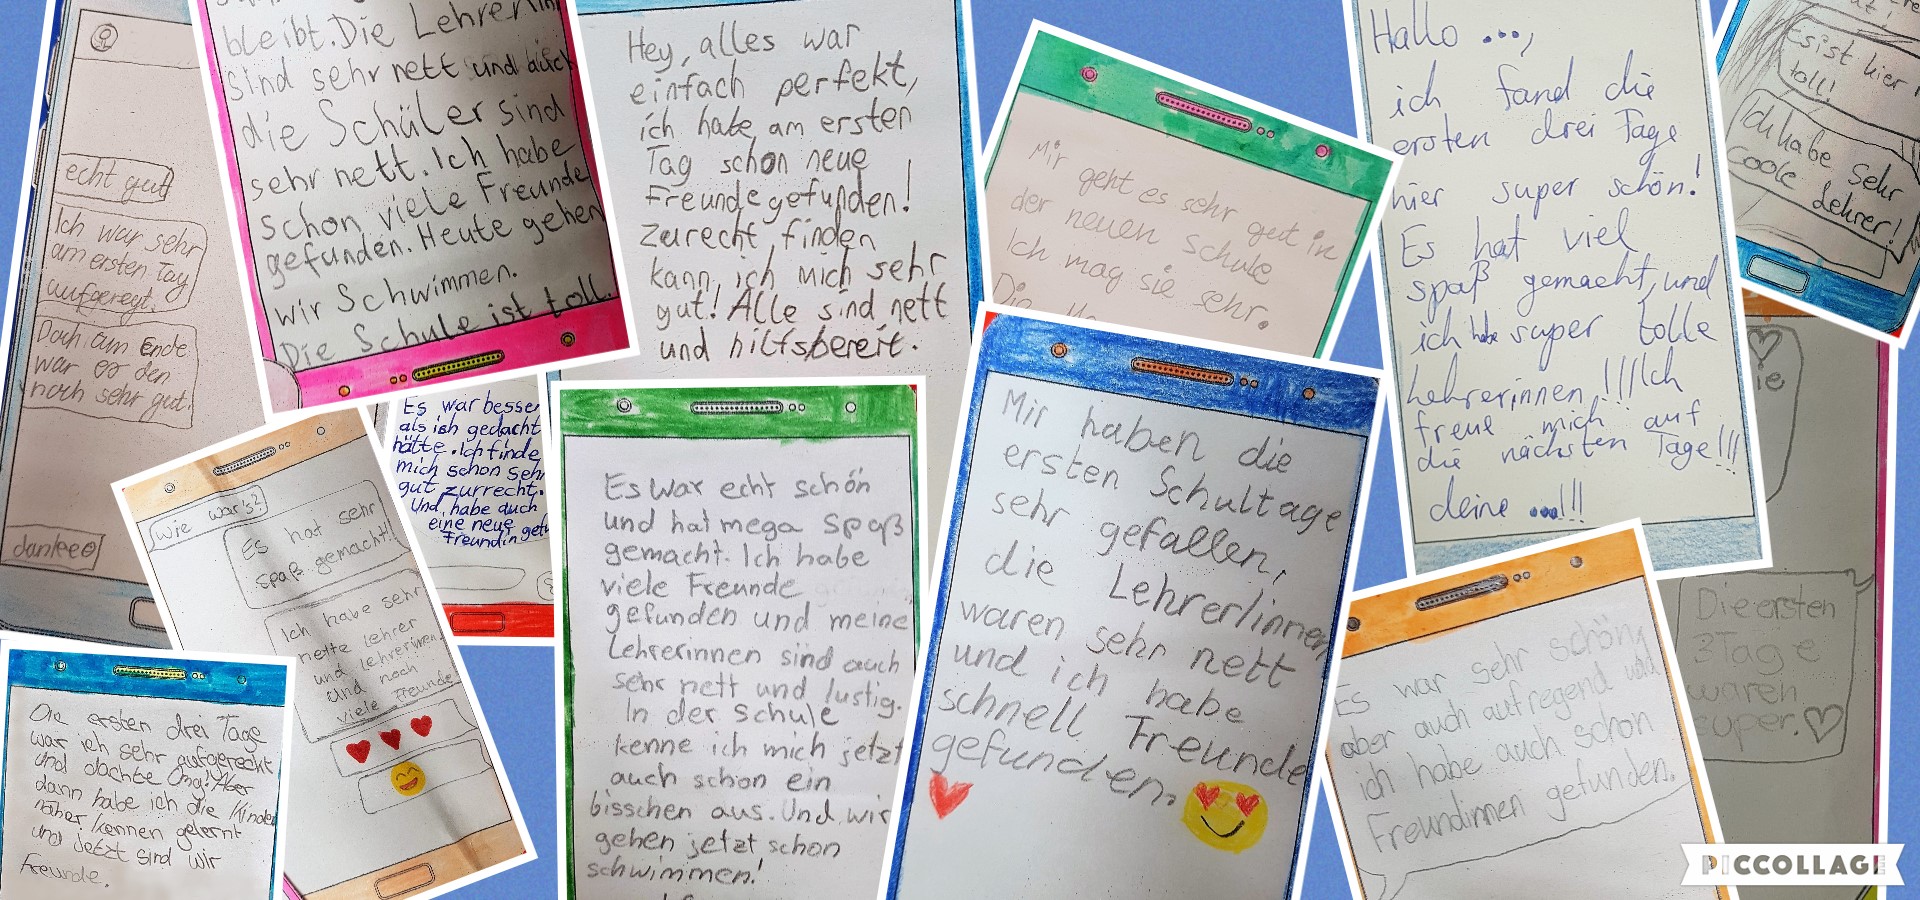 echt gut
Ich war sehr
am ersten Tag
aufgeregt.
Doch am Ende
war es den
noch sehr gut.
dankee
bleibt. Die Lehrerinn
sind sehr nett und auch
die Schüler sind
sehr nett. Ich habe
schon viele Freunde
gefunden. Heute gehen
wir Schwimmen.
Die Schule ist toll.
Hey, alles war
einfach perfekt,
ich habe am ersten
Tag schon neue
Freunde gefunden!
zurecht finden
kann ich mich sehr
gut! Alle sind nett
und hilfsbereit.
Mir geht es sehr gut in
der neuen Schule
Ich mag sie sehr.
Die
Hallo ...,
ich fand die
ersten drei Tage
hier super schön!
Es hat viel
spaß gemacht, und
ich habe super tolle
Lehrerinnen!!! Ich
freue mich auf
die nächsten Tage!!!
deine ...!!!
Es ist hier
toll!
Ich habe sehr
coole Lehrer!
ie
Die ersten
3 Tage
waren
super.
wie war's?
Es hat sehr
spaß gemacht!
Ich habe sehr
nette Lehrer
und Lehrerinnen.
und noch
viele Freunde
Es war besser
als ich gedacht
hätte. Ich finde
mich schon sehr
gut zurrecht.
Und, habe auch
eine neue
Freundin gefu
Die ersten drei Tage
war ich sehr aufgereckt
und dachte Omg! Aber
dann habe ich die Kinder
näher kennen gelernt
und jetzt sind wir
Freunde.
Es war echt schön
und hat mega Spaß
gemacht. Ich habe
viele Freunde
gefunden und meine
Lehrerinnen sind auch
sehr nett und lustig.
In der Schule
kenne ich mich jetzt
auch schon ein
bisschen aus. Und wir
gehen jetzt schon
schwimmen!
Mir haben die
ersten Schultage
sehr gefallen,
die Lehrer/innen
waren sehr nett
und ich habe
schnell Freunde
gefunden.
Es war sehr schön,
aber auch aufregend und
ich habe auch schon
Freundinnen gefunden.
PICCOLLAGE